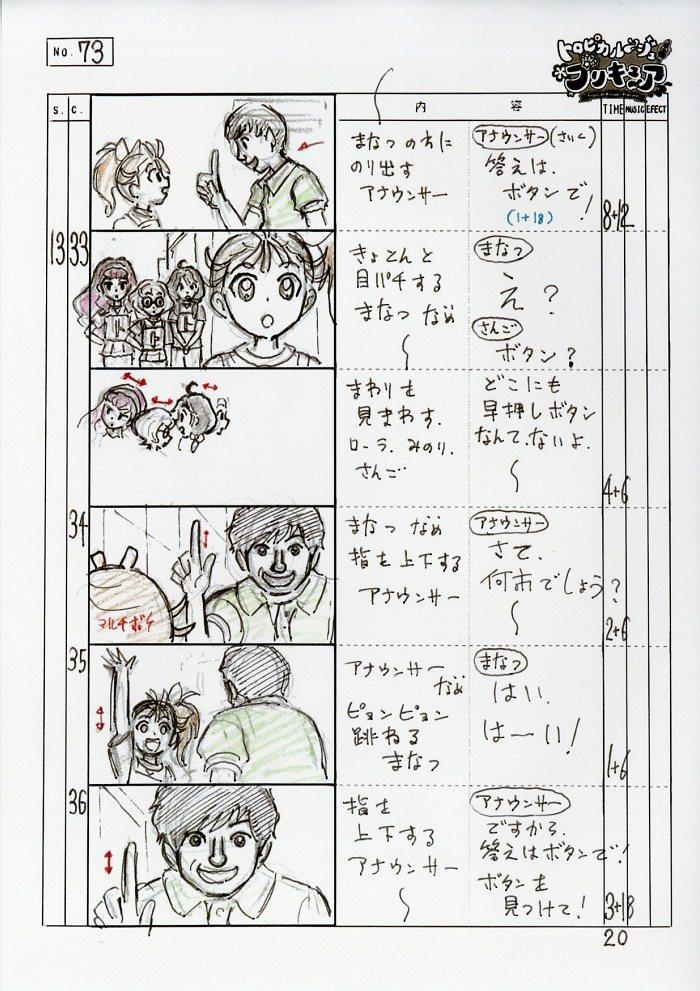 No. 73
トロピカル〜ジュ
プリキュア
S. C. 内容 TIME MUSIC EFECT
まなつの方に
のり出す
アナウンサー
アナウンサー
答えは、
ボタンで!
(1+18)
8+12
13 33
きょとんと
目パチする
まなつ なめ
まなつ
え?
さんご
ボタン?
まわりを
見まわす.
ローラ. みのり.
さんご
どこにも
早押しボタン
なんて、ないよ.
4+6
34
まなつ なめ
指を上下する
アナウンサー
アナウンサー
さて、
何市でしょう?
マルチボケ
2+6
35
アナウンサー
なめ
ピョンピョン
跳ねる
まなつ
まなつ
はい、
はーい!
1+6
36
指を
上下する
アナウンサー
アナウンサー
ですから、
答えはボタンで!
ボタンを
見つけて!
3+18
20